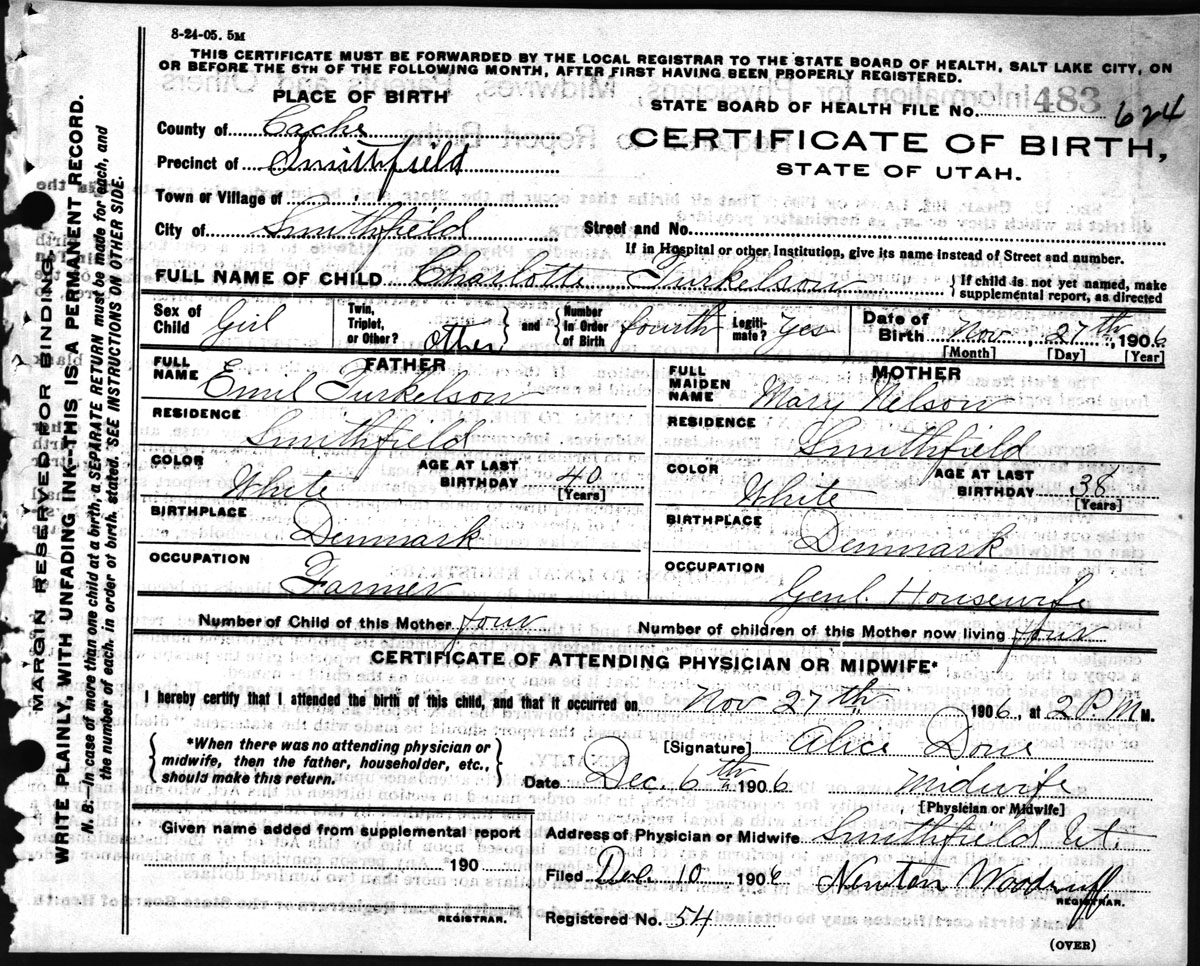 8-24-05. 5M
THIS CERTIFICATE MUST BE FORWARDED BY THE LOCAL REGISTRAR TO THE STATE BOARD OF HEALTH, SALT LAKE CITY, ON
OR BEFORE THE 5TH OF THE FOLLOWING MONTH, AFTER FIRST HAVING BEEN PROPERLY REGISTERED.
PLACE OF BIRTH
STATE BOARD OF HEALTH FILE No. 483 624
County of Cache
CERTIFICATE OF BIRTH,
Precinct of Smithfield
STATE OF UTAH.
Town or Village of
City of Smithfield Street and No.
If in Hospital or other Institution, give its name instead of Street and number.
FULL NAME OF CHILD Charlotte Turkelson } If child is not yet named, make supplemental report, as directed
Sex of Child Girl Twin, Triplet, or Other? other } and { Number in Order of Birth fourth Legiti-mate? Yes Date of Birth Nov, 27th, 1906
[Month] [Day] [Year]
FATHER
FULL NAME Emil Turkelson
RESIDENCE
Smithfield
COLOR White AGE AT LAST BIRTHDAY 40
[Years]
BIRTHPLACE
Denmark
OCCUPATION
Farmer
MOTHER
FULL MAIDEN NAME Mary Nelson
RESIDENCE
Smithfield
COLOR White AGE AT LAST BIRTHDAY 38
[Years]
BIRTHPLACE
Denmark
OCCUPATION
Genl. Housewife
Number of Child of this Mother four Number of children of this Mother now living four
CERTIFICATE OF ATTENDING PHYSICIAN OR MIDWIFE*
I hereby certify that I attended the birth of this child, and that it occurred on Nov 27th 1906, at 2 P M M.
{ *When there was no attending physician or midwife, then the father, householder, etc., should make this return. }
[Signature] Alice
Date Dec. 6th 1906 Midwife
[Physician or Midwife]
Given name added from supplemental report
190
REGISTRAR.
Address of Physician or Midwife Smithfield Ut.
Filed Dec. 10 1906 Newton Woodruff
REGISTRAR.
Registered No. 54
(OVER)
MARGIN RESERVED FOR BINDING.
WRITE PLAINLY, WITH UNFADING INK—THIS IS A PERMANENT RECORD.
N. B.—In case of more than one child at a birth, a SEPARATE RETURN must be made for each, and
the number of each, in order of birth, stated. SEE INSTRUCTIONS ON OTHER SIDE.